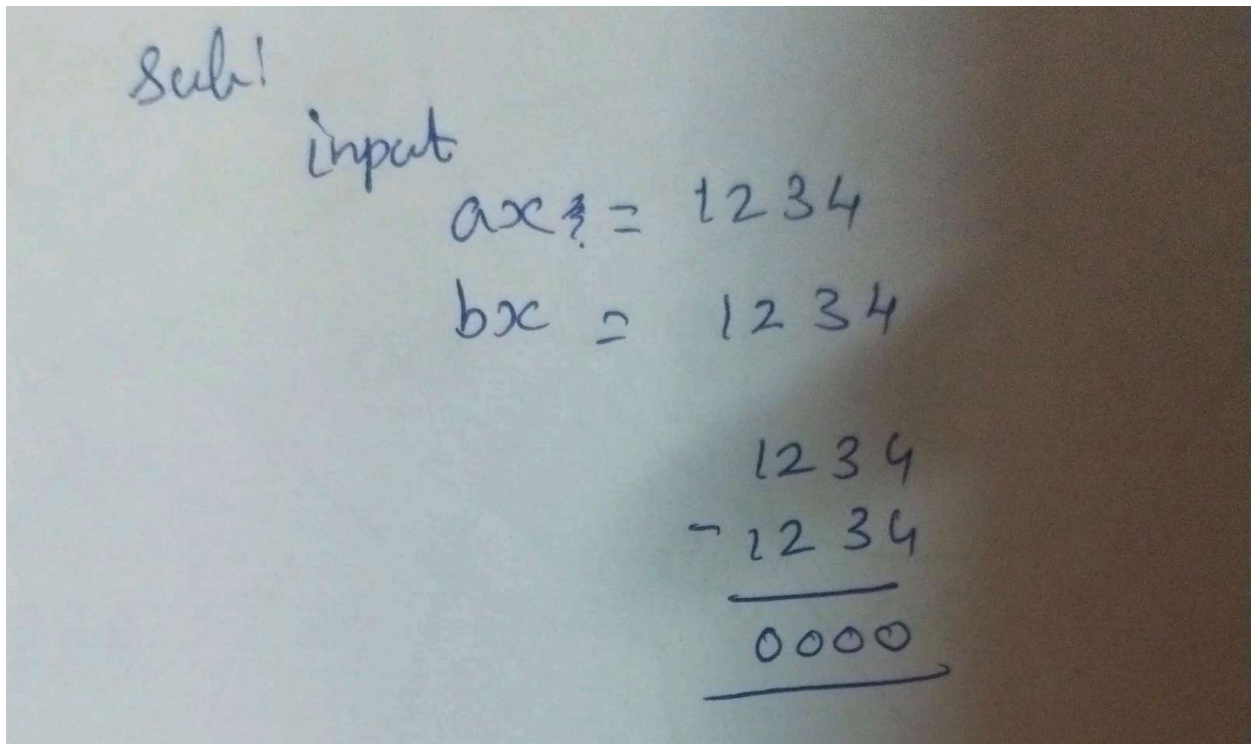 Sub!
input
ax = 1234
bx = 1234
1234
- 1234
0000